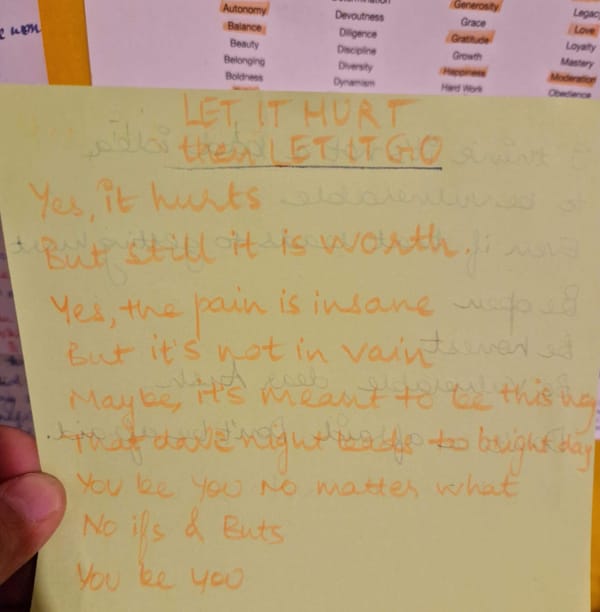 Autonomy
Balance
Beauty
Belonging
Boldness
Devoutness
Diligence
Discipline
Diversity
Dynamism
Generosity
Grace
Gratitude
Growth
Happiness
Hard Work
Legac
Love
Loyalty
Mastery
Moderation
Obedience
LET IT HURT
then LET IT GO
Yes, it hurts
But still it is worth.
Yes, the pain is insane
But it's not in vain
Maybe, it's meant to be this
That dark night leads to bright day
You be you no matter what
No ifs & Buts
You be you